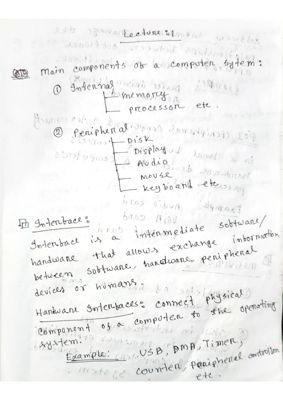 Lecture: 1
Main components of a computer sytem:
① Internal
memory
processor etc.
② Peripheral
Disk
Display
Audio
Mouse
keyboard etc
Interface:
Interface is a intermediate software/
hardware that allows exchange information
between software, hardware peripheral
devices or humans.
Hardware Interfaces: connect physical
component of a computer to the operating
system.
Example: USB, DMA, Timer,
counter, Peripheral controller
etc.